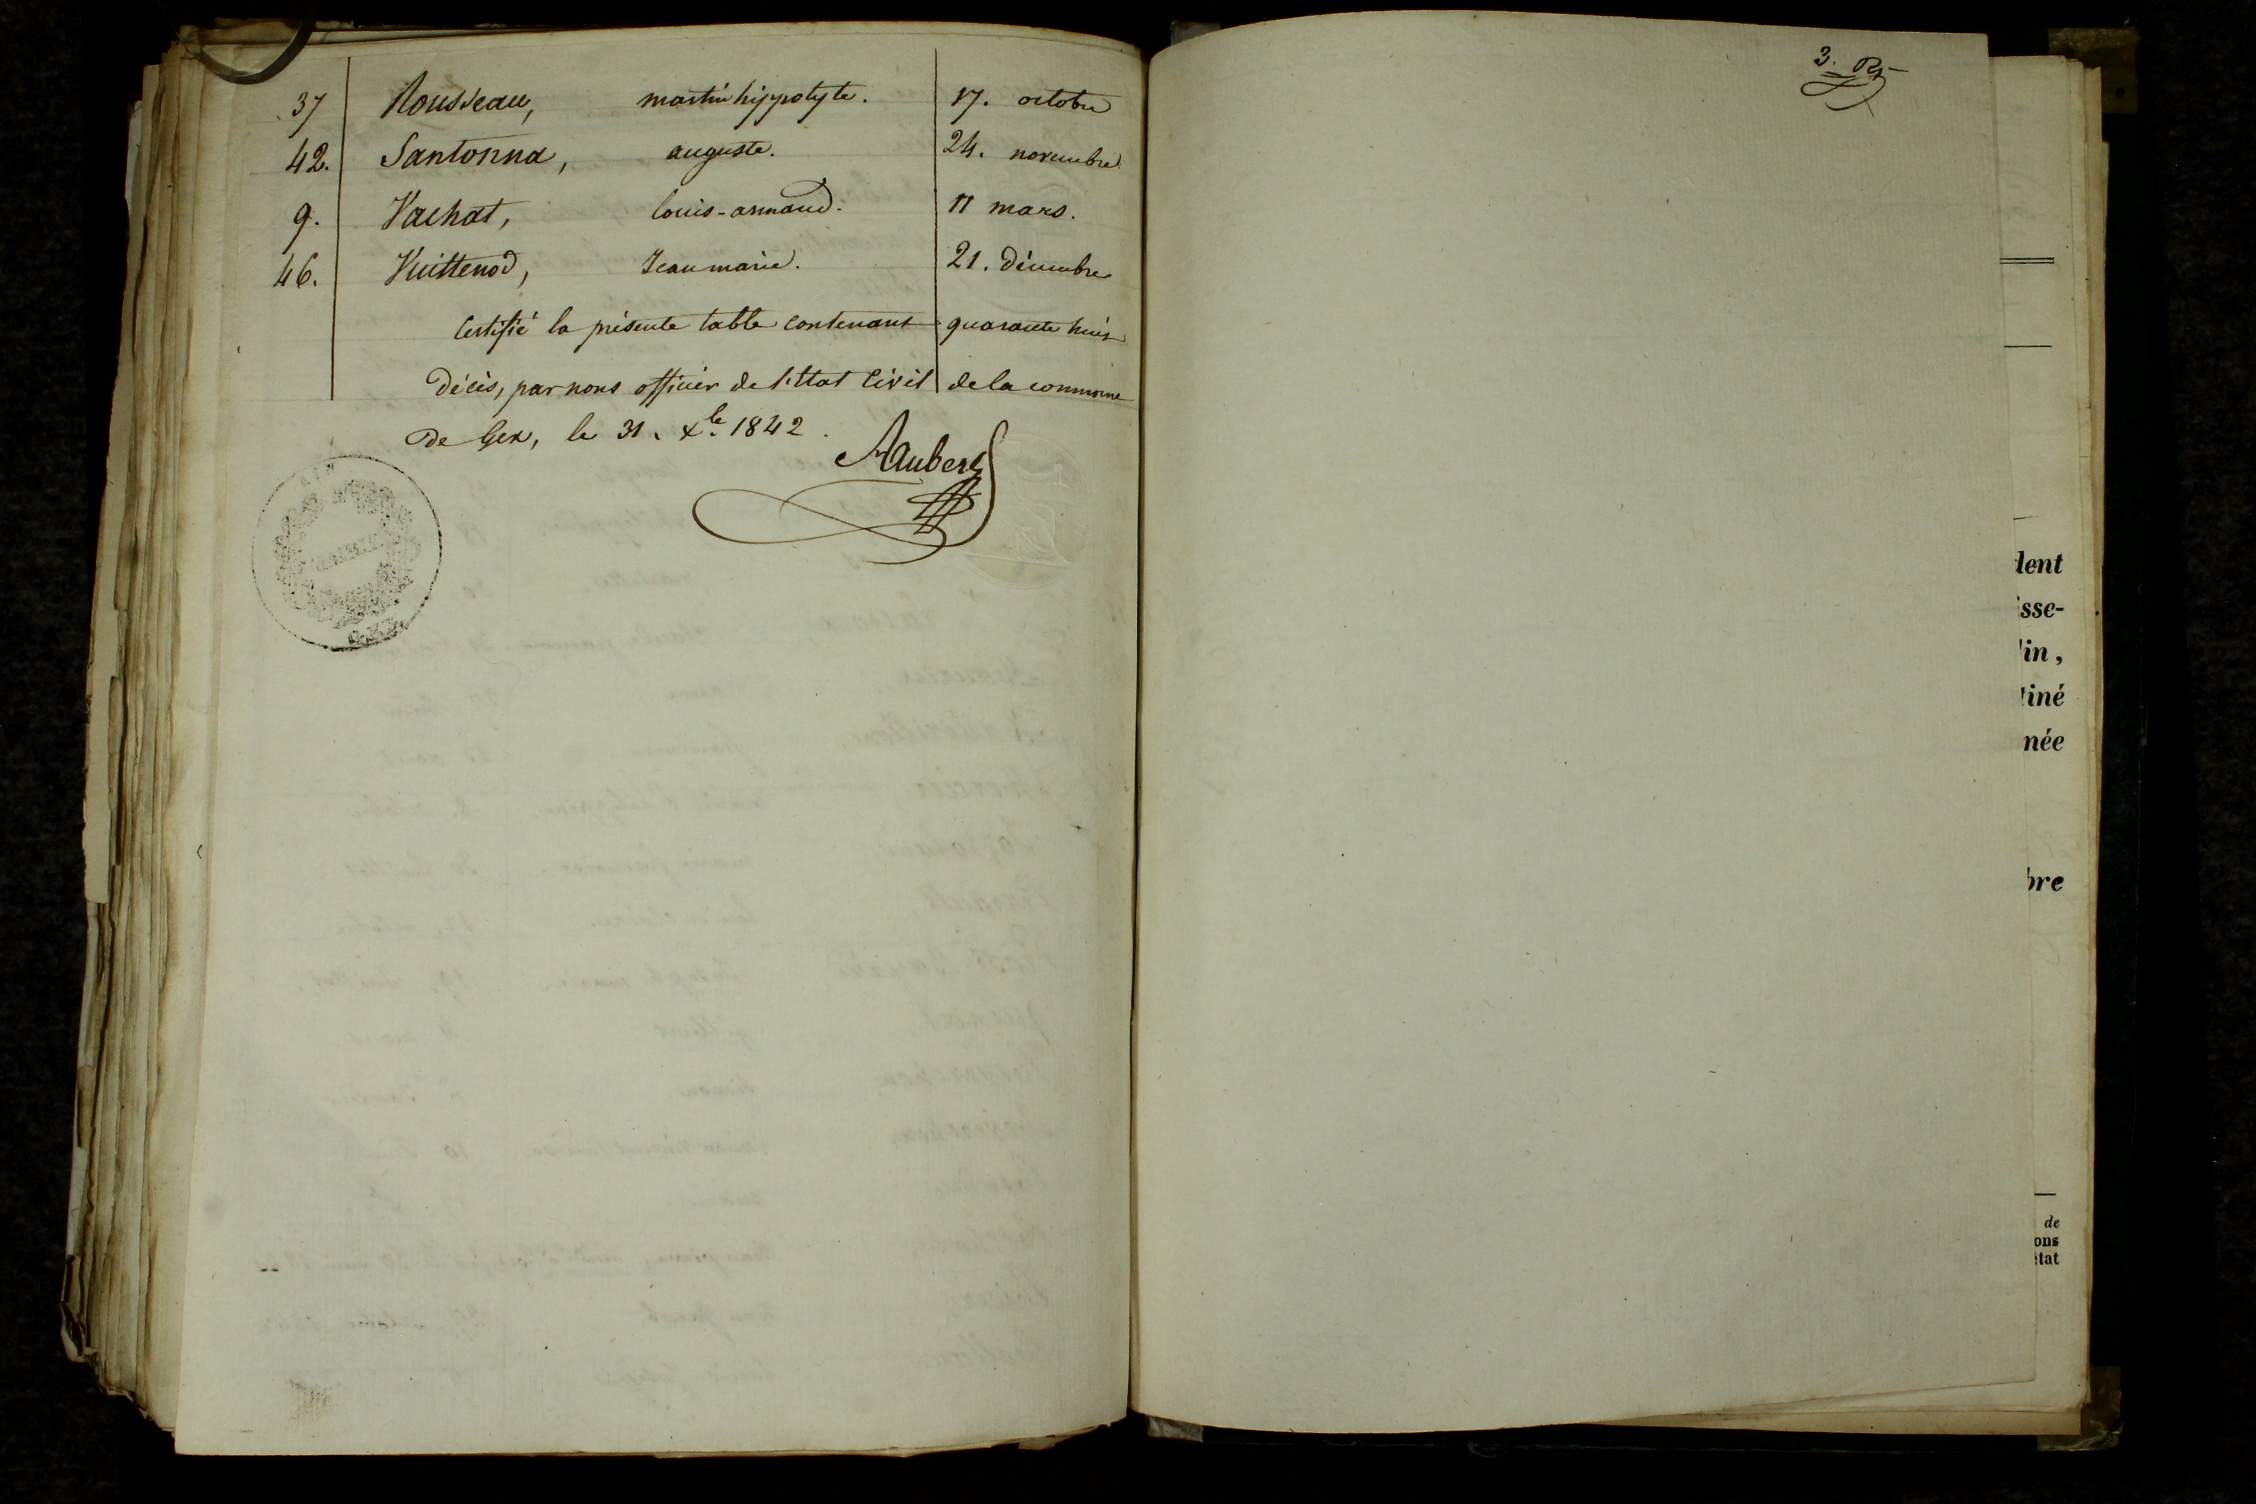 37 Rousseau, martin hippolyte. 17. octobre
42. Santonna, auguste. 24. novembre
9. Vachat, louis-armand. 11 mars.
46. Vuittenod, Jean marie. 21. décembre
Certifié la présente table contenant quarante huit
décès, par nous officier de l'état Civil de la commune
de Gex, le 31. Xbre 1842.
3.
dent
isse-
in,
tiné
née
bre
de
ons
état